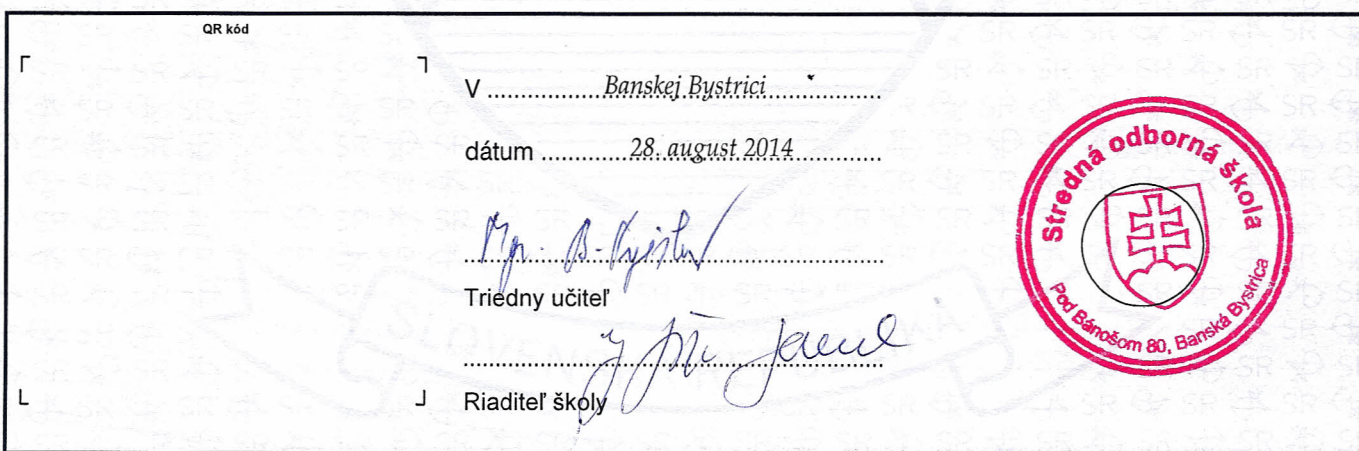 QR kód
V ................ Banskej Bystrici ................
dátum ............ 28. august 2014 ............
Mgr. B.
Triedny učiteľ
Riaditeľ školy
Stredná odborná škola
Pod Bánošom 80, Banská Bystrica